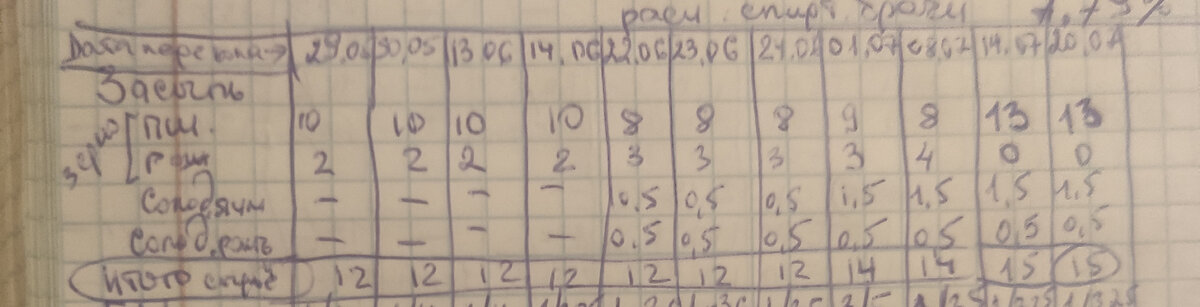 расч. спирт. браги 7,75%
Дата перегона → 29.05 30,05 13.06 14.06 22.06 23.06 24.07 01.07 08.07 19.07 20.07
Засыпь
зерно [ Пш. 10 10 10 10 8 8 8 9 8 13 13
Рожь 2 2 2 2 3 3 3 3 4 0 0
Солод ячм — — — — 0.5 0,5 0,5 1,5 1,5 1,5 1,5
Солод. рожь — — — — 0.5 0,5 0,5 0,5 0,5 0,5 0,5
Итого сырьё 12 12 12 12 12 12 12 14 14 15 15